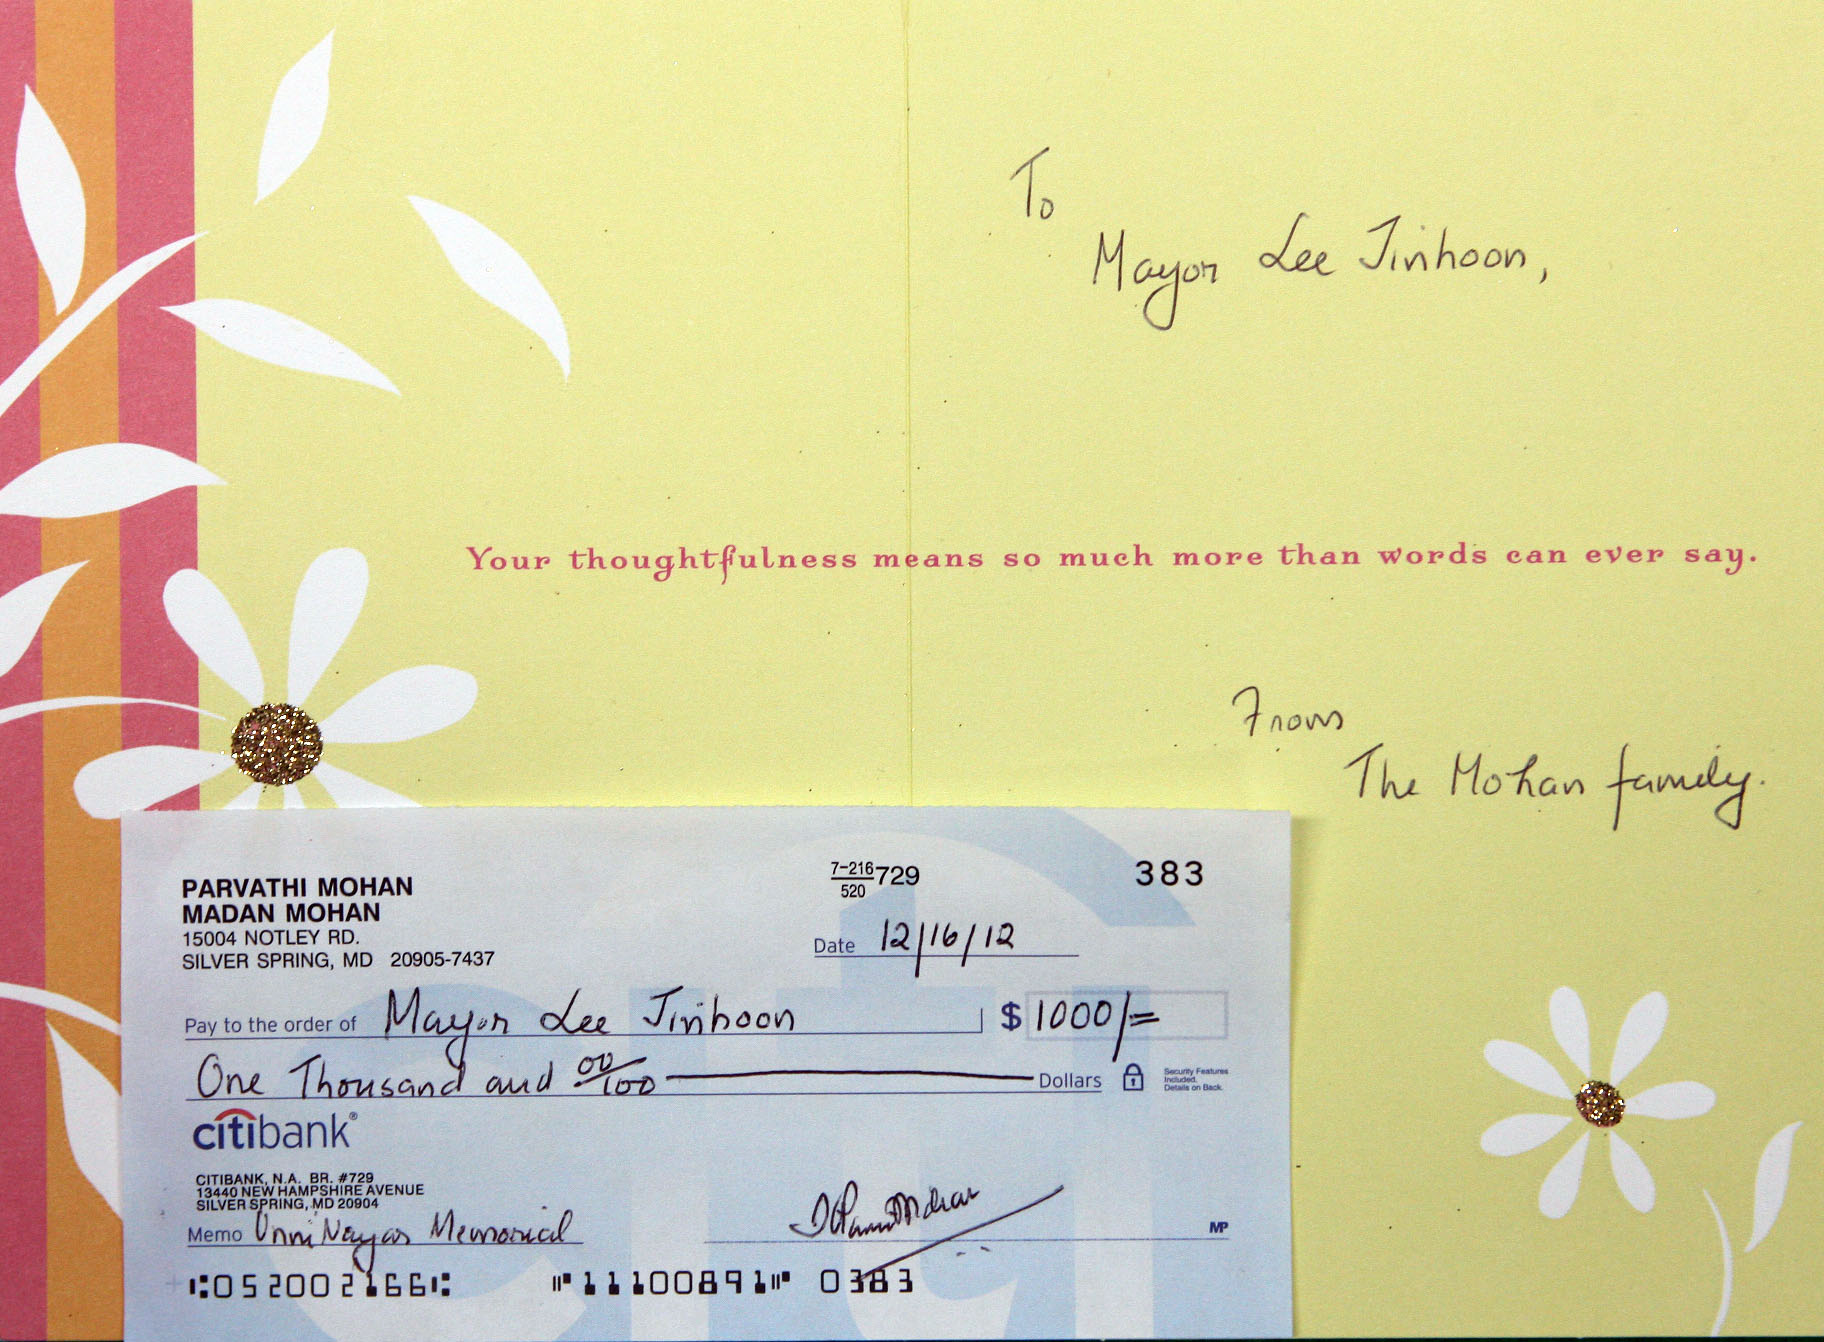 To
Mayor Lee Jinhoon,
Your thoughtfulness means so much more than words can ever say.
From
The Mohan family.
PARVATHI MOHAN
MADAN MOHAN
15004 NOTLEY RD.
SILVER SPRING, MD 20905-7437
7-216/520 729
383
Date 12/16/12
Pay to the order of Mayor Lee Jinhoon $ 1000/=
One Thousand and 00/100 Dollars
Security Features
Included.
Details on Back.
citibank®
CITIBANK, N.A. BR. #729
13440 NEW HAMPSHIRE AVENUE
SILVER SPRING, MD 20904
Memo Unni Nayar Memorial
MP
⑆052002166⑆ ⑈11100891⑈ 0383